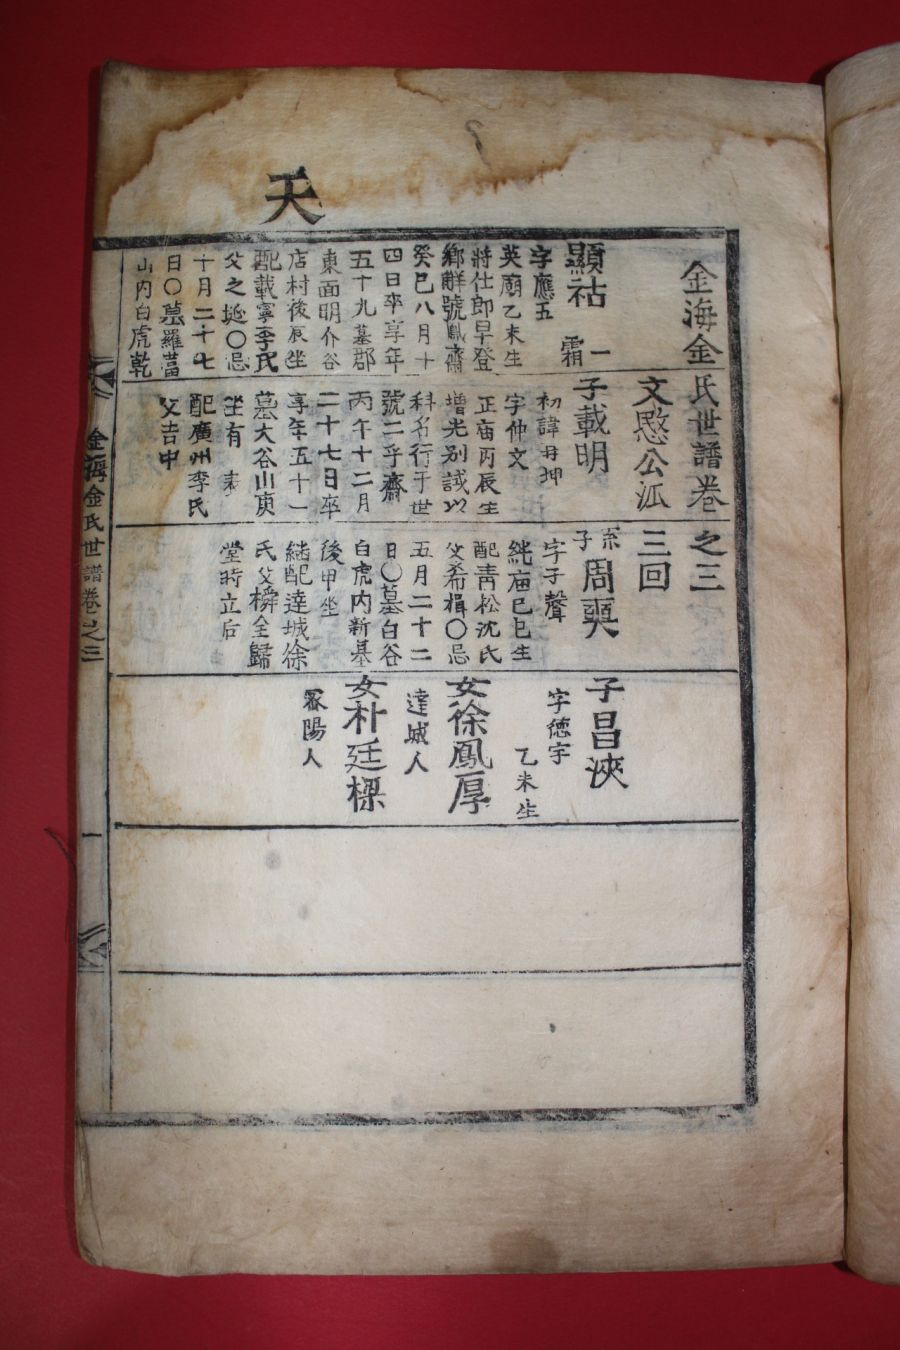 天
金海金氏世譜卷之三
文愍公派 三回
顯祜 一霜
字應五
英廟乙未生
將仕郎早登
鄉解號鳳齋
癸巳八月十
四日卒享年
五十九墓郡
東面明介谷
店村後辰坐
配載寧李氏
父之埏〇忌
十月二十七
日〇墓羅菖
山內白虎乾
子載明
初諱
字仲文
正庙丙辰生
增光別試以
科名行于世
號二乎齋
丙午十二月
二十七日卒
享年五十一
墓大谷山庚
坐有表
配廣州李氏
父吉中
系子周奭
字子聲
純庙己巳生
配靑松沈氏
父希楫〇忌
五月二十二
日〇墓白谷
白虎內新基
後甲坐
継配達城徐
氏父橓全歸
堂時立后
子昌浹
字德宇
乙未生
女徐鳳厚
達城人
女朴廷樑
密陽人
金海金氏世譜卷之三
一